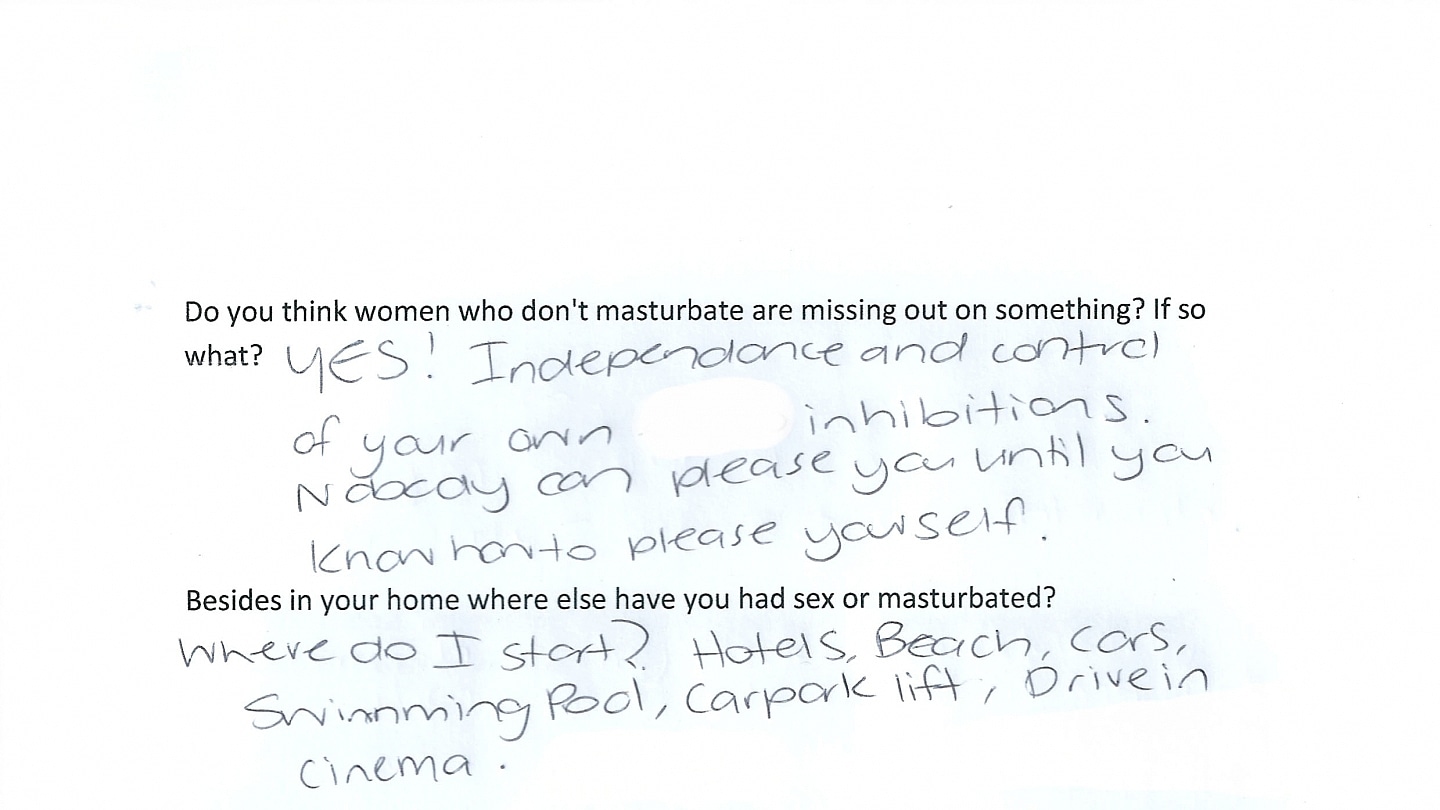 Do you think women who don't masturbate are missing out on something? If so
what? YES! Independance and control
of your own inhibitions.
Nobody can please you until you
know how to please yourself.
Besides in your home where else have you had sex or masturbated?
Where do I start? Hotels, Beach, cars,
Swimming Pool, Carpark lift, Drive in
cinema.